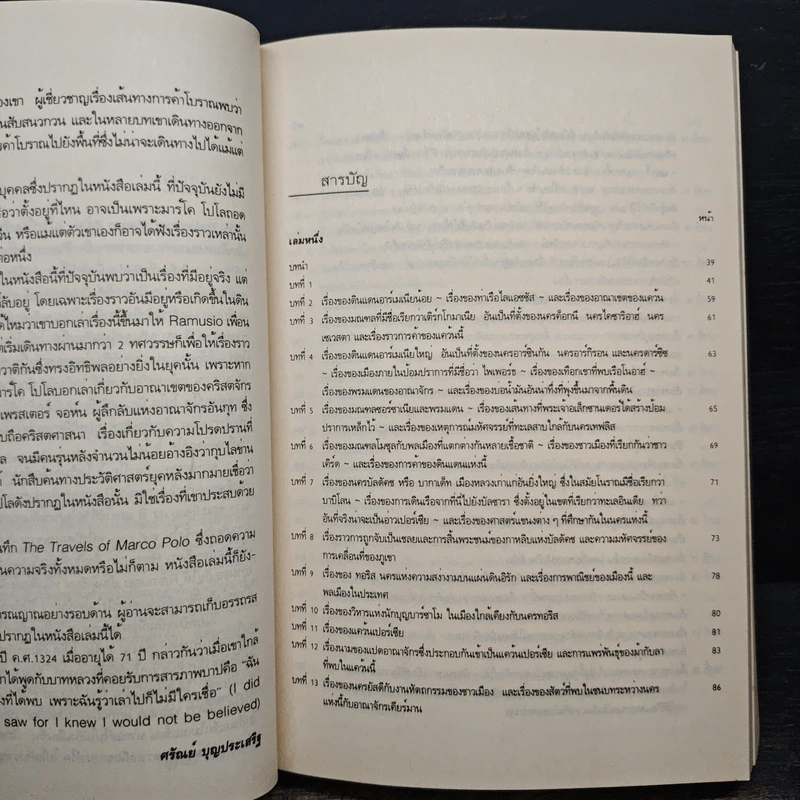 องเขา ผู้เชี่ยวชาญเรื่องเส้นทางการค้าโบราณพบว่า
นสับสนวกวน และในหลายบทเขาเดินทางออกจาก
รค้าโบราณไปยังพื้นที่ซึ่งไม่น่าจะเดินทางไปได้แม้แต่
บุคคลซึ่งปรากฏในหนังสือเล่มนี้ ที่ปัจจุบันยังไม่มี
รือว่าตั้งอยู่ที่ไหน อาจเป็นเพราะมาร์โค โปโลถอด
จีน หรือแม้แต่ตัวเขาเองก็อาจได้ฟังเรื่องราวเหล่านั้น
่อหนึ่ง
ในหนังสือนี้ที่ปัจจุบันพบว่าเป็นเรื่องที่มีอยู่จริง แต่
ลับอยู่ โดยเฉพาะเรื่องราวอันมีอยู่หรือเกิดขึ้นในดิน
ด้ไหมว่าเขาบอกเล่าเรื่องนี้ขึ้นมาให้ Ramusio เพื่อน
ต่เริ่มเดินทางผ่านมากว่า 2 ทศวรรษก็เพื่อให้เรื่องราว
วาติกันซึ่งทรงอิทธิพลอย่างยิ่งในยุคนั้น เพราะหาก
าร์โค โปโลบอกเล่าเกี่ยวกับอาณาเขตของคริสตจักร
เพรสเตอร์ จอห์น ผู้ลึกลับแห่งอาณาจักรอันกุท ซึ่ง
บถือคริสตศาสนา เรื่องเกี่ยวกับความโปรดปรานที่
ล จนมีคนรุ่นหลังจำนวนไม่น้อยอ้างอิงว่ากุบไลข่าน
นักสืบค้นทางประวัติศาสตร์ยุคหลังมากมายเชื่อว่า
โปโลดังปรากฏในหนังสือนั้น มิใช่เรื่องที่เขาประสบด้วย
ทึก The Travels of Marco Polo ซึ่งถอดความ
นความจริงทั้งหมดหรือไม่ก็ตาม หนังสือเล่มนี้ก็ยัง-
ารณญาณอย่างรอบด้าน ผู้อ่านจะสามารถเก็บอรรถรส
ปรากฏในหนังสือเล่มนี้ได้
ปี ค.ศ.1324 เมื่ออายุได้ 71 ปี กล่าวกันว่าเมื่อเขาใกล้
กได้พูดกับบาทหลวงที่คอยรับการสารภาพบาปคือ “ฉัน
งที่ได้พบ เพราะฉันรู้ว่าเล่าไปก็ไม่มีใครเชื่อ” (I did
saw for I knew I would not be believed)
ศรัณย์ บุญประเสริฐ
สารบัญ
หน้า
เล่มหนึ่ง
บทนำ 39
บทที่ 1 41
บทที่ 2 เรื่องของดินแดนอาร์เมเนียน้อย ~ เรื่องของท่าเรือไลแอซซัส ~ และเรื่องของอาณาเขตของแคว้น 59
บทที่ 3 เรื่องของมณฑลที่มีชื่อเรียกว่าเติร์กโกมาเนีย อันเป็นที่ตั้งของนครค็อกนี นครไคซาริอาห์ นคร 61
เซเวสตา และเรื่องราวการค้าของแคว้นนี้
บทที่ 4 เรื่องของดินแดนอาร์เมเนียใหญ่ อันเป็นที่ตั้งของนครอาร์ซินกัน นครอาร์กิรอน และนครดาร์ซิซ 63
~ เรื่องของเมืองภายในป้อมปราการที่มีชื่อว่า ไพเพอร์ธ ~ เรื่องของเทือกเขาที่พบเรือโนอาห์ ~
เรื่องของพรมแดนของอาณาจักร ~ และเรื่องของบ่อน้ำมันอันน่าทึ่งที่พุ่งขึ้นมาจากพื้นดิน
บทที่ 5 เรื่องของมณฑลซอร์ซาเนียและพรมแดน ~ เรื่องของเส้นทางที่พระเจ้าอเล็กซานเดอร์ได้สร้างป้อม 65
ปราการเหล็กไว้ ~ และเรื่องของเหตุการณ์มหัศจรรย์ที่ทะเลสาบใกล้กับนครเทฟลิส
บทที่ 6 เรื่องของมณฑลโมซุลกับพลเมืองที่แตกต่างกันหลายเชื้อชาติ ~ เรื่องของชาวเมืองที่เรียกกันว่าชาว 69
เคิร์ด ~ และเรื่องของการค้าของดินแดนแห่งนี้
บทที่ 7 เรื่องของนครบัลดัคซ หรือ บากาเด็ท เมืองหลวงเก่าแก่อันยิ่งใหญ่ ซึ่งในสมัยโบราณมีชื่อเรียกว่า 71
บาบิโลน ~ เรื่องของการเดินเรือจากที่นี่ไปยังบัลซารา ซึ่งตั้งอยู่ในเขตที่เรียกว่าทะเลอินเดีย ทว่า
อันที่จริงน่าจะเป็นอ่าวเปอร์เซีย ~ และเรื่องของศาสตร์แขนงต่าง ๆ ที่ศึกษากันในนครแห่งนี้
บทที่ 8 เรื่องราวการถูกจับเป็นเชลยและการสิ้นพระชนม์ของกาหลิบแห่งบัลดัคซ และความมหัศจรรย์ของ 73
การเคลื่อนที่ของภูเขา
บทที่ 9 เรื่องของ ทอริส นครแห่งความสง่างามบนแผ่นดินอิรัก และเรื่องการพาณิชย์ของเมืองนี้ และ 78
พลเมืองในประเทศ
บทที่ 10 เรื่องของวิหารแห่งนักบุญบาร์ซาโม ในเมืองใกล้เคียงกับนครทอริส 80
บทที่ 11 เรื่องของแคว้นเปอร์เซีย 81
บทที่ 12 เรื่องนามของแปดอาณาจักรซึ่งประกอบกันเข้าเป็นแคว้นเปอร์เซีย และการแพร่พันธุ์ของม้ากับลา 83
ที่พบในแคว้นนี้
บทที่ 13 เรื่องของนครยัสดีกับงานหัตถกรรมของชาวเมือง และเรื่องของสัตว์ที่พบในชนบทระหว่างนคร 86
แห่งนี้กับอาณาจักรเคียร์มาน